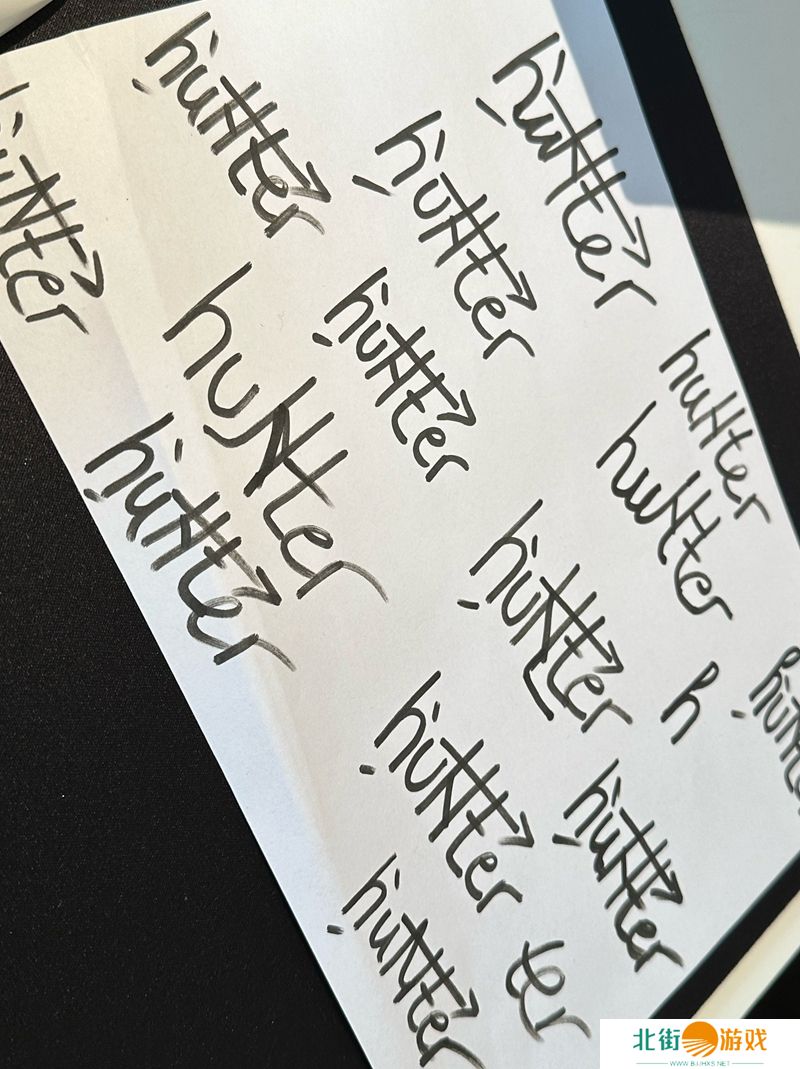 hunter
hunter
hunter
hunter
hunter
hunter
hunter
hunter
hunter
hunter
hunter
h
hunter
hunter
hunter
ter
北街游戏